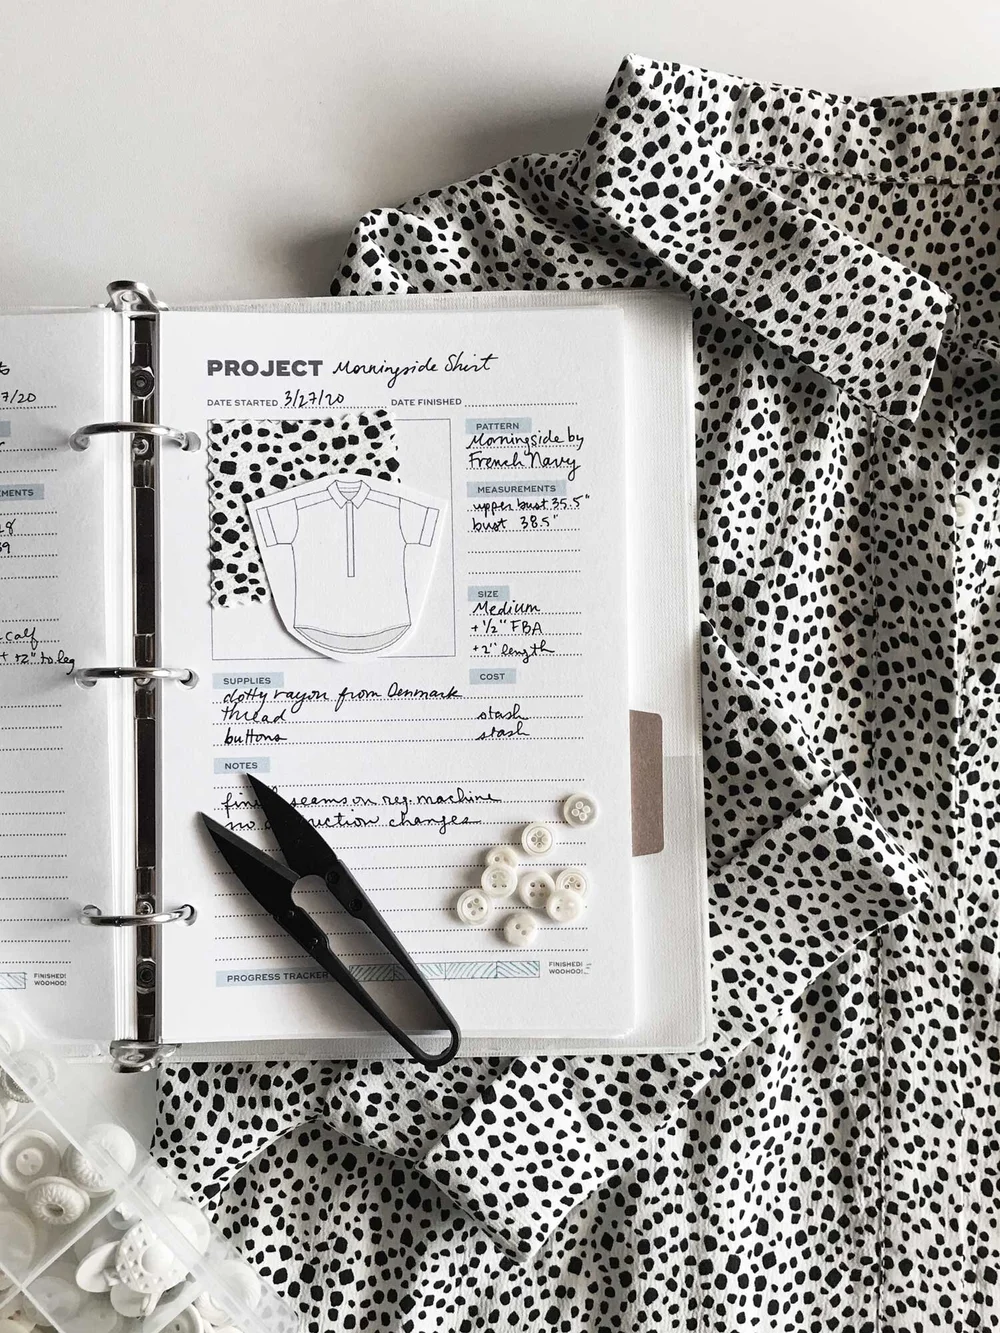 7/20
EMENTS
39
calf
+ +2" to leg
FINISHED!
WOOHOO!
PROJECT Morningside Shirt
DATE STARTED 3/27/20 DATE FINISHED
PATTERN
Morningside by
French Navy
MEASUREMENTS
upper bust 35.5"
bust 38.5"
SIZE
Medium
+ 1/2" FBA
+2" length
SUPPLIES
COST
dotty rayon from Denmark
thread stash
buttons stash
NOTES
seams on reg. machine
no changes
PROGRESS TRACKER
FINISHED!
WOOHOO!